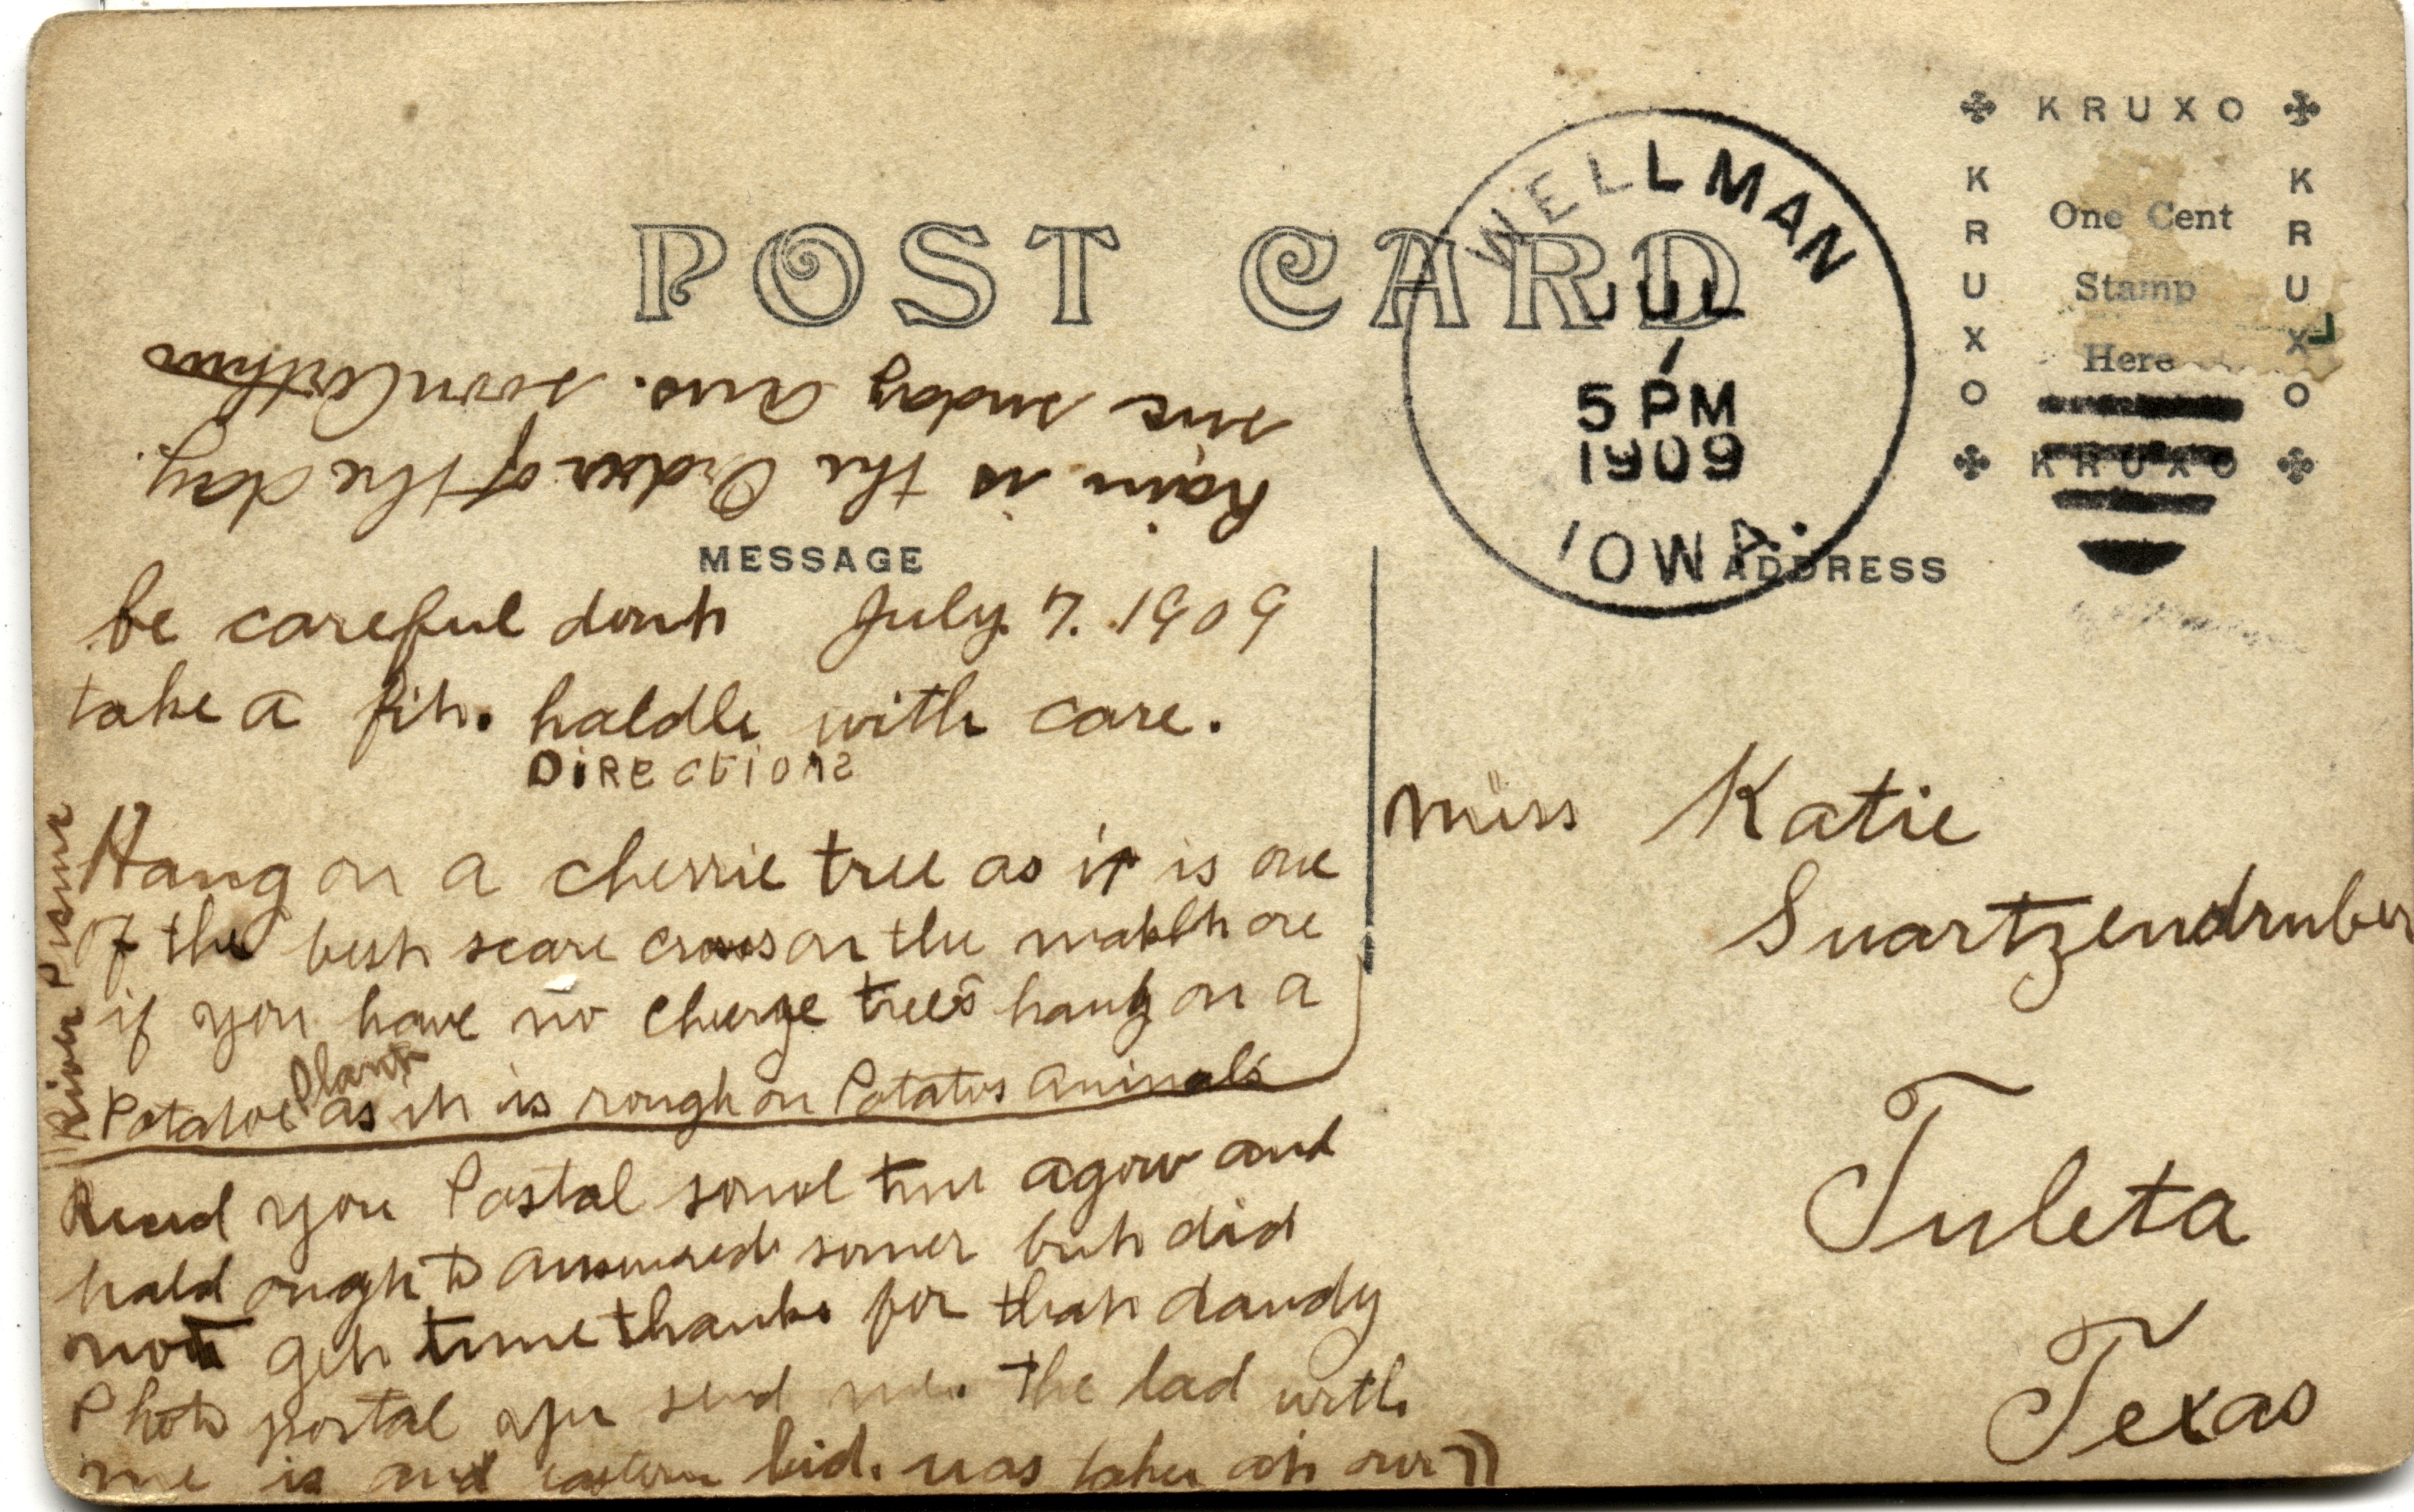 POST CARD
WELLMAN
JUL
7
5 PM
1909
IOWA.
KRUXO
KRUXO
KRUXO
KRUXO
One Cent
Stamp
Here
MESSAGE
ADDRESS
be careful dont July 7. 1909
take a fit. haldle with care.
DiRectionS
Hang on a cherrie tree as it is one
of the best scare crows on the
if you have no trees hang on a
Potatoe Plant as it is rough on Potatos animals
you Postal time agow and
ought to but did
not get time thanks for that dandy
Photo postal you send me. The lad with
me is and eastern kid. was taken at our
River Picnic
Rain is the Order of the day.
me sunday ans. soon
Miss Katie
Swartzendruber
Tuleta
Texas